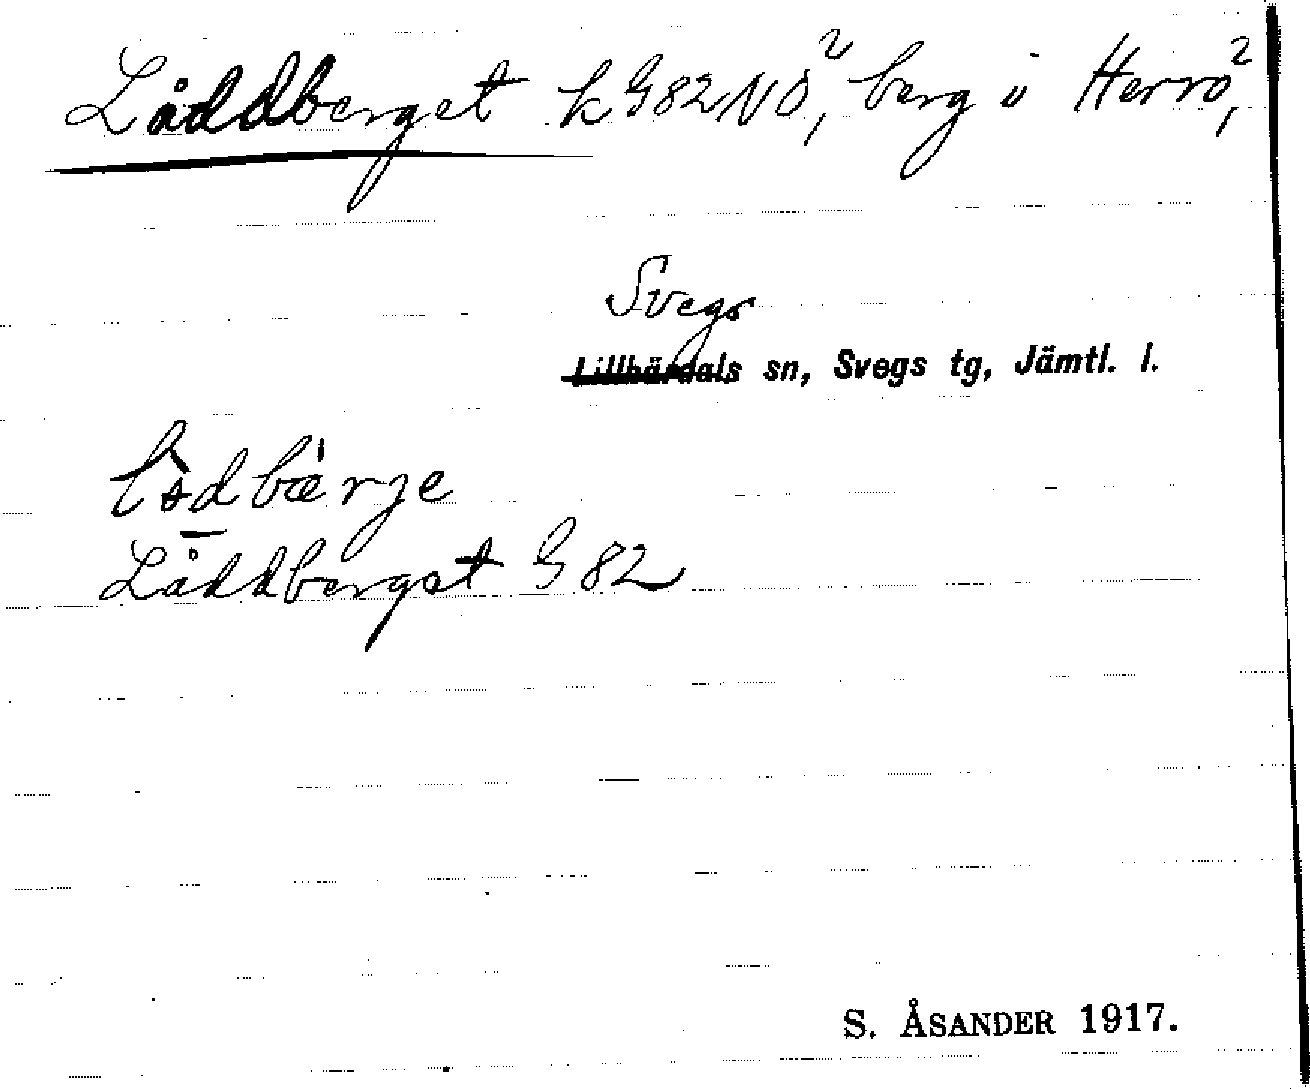 Låddberget k G82NÖ,² berg i Herrö,²
Svegs
Lillhärdals sn, Svegs tg, Jämtl. l.
lòdbǽrje
Låddberget G82
S. ÅSANDER 1917.